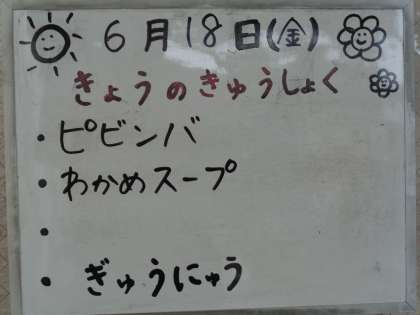 6月18日(金)
きょうのきゅうしょく
・ピビンバ
・わかめスープ
・
・ぎゅうにゅう